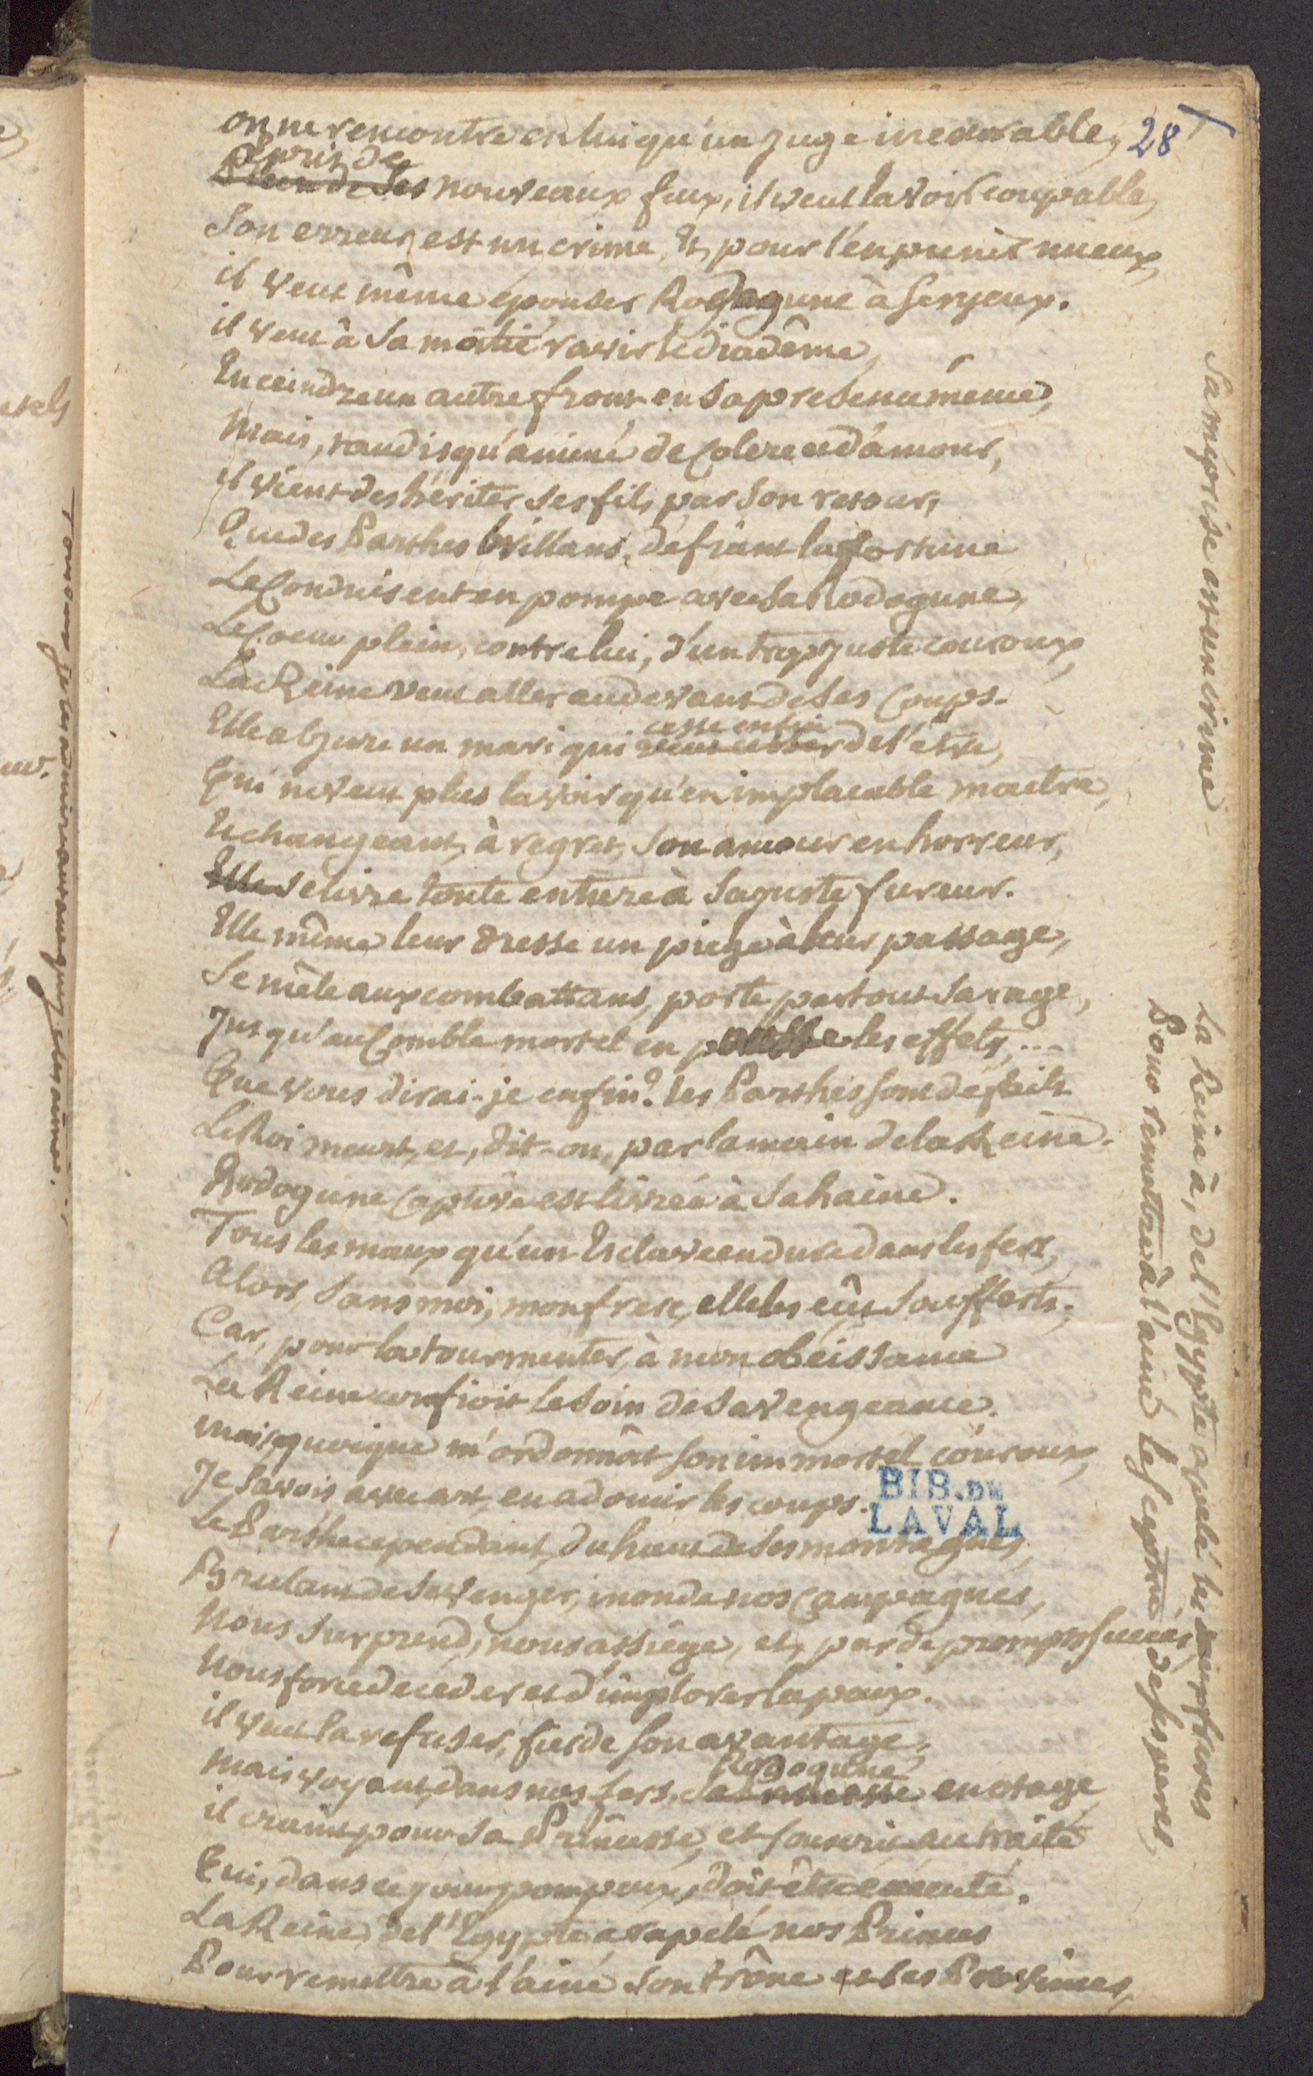 28
on ne rencontre en lui qu'un juge inexorable,
épris de
Plein de ses nouveaux feux, il veut la voir coupable,
Son erreur est un crime, Et, pour l'en punir mieux,
il veut même épouser Rodogune à ses yeux.
il veut à sa moitié ravir le diadême,
En ceindre un autre front en sa presence même,
Mais, tandis qu'animé de Colere et d'amour,
il vient deshériter ses fils par son retour,
Que des Parthes brillans, défiant la fortune
Le Conduisent en pompe avec sa Rodogune,
Le Coeur plein, contre lui, d'un trop juste couroux,
La Reine veut aller audevant de ses Coups.
cesse enfin
Elle abjure un mari qui veut cesser de l'être,
Qui ne veut plus la voir qu'en implacable maitre,
Et changeant, à regret, son amour en horreur,
Elle se livre toute entiere à sa juste fureur.
Elle même leur dresse un piege à leur passage,
Se mêle aux combattans, porte partout sa rage,
Jusqu'au Comble mortel en pousse les effets, ...
Que vous dirai-je enfin? les Parthes sont défaits
Le Roi meurt, et, dit-on, par la main de la Reine.
Rodogune Captive est livrée à sa haine.
Tous les maux qu'un Esclave endure dans les fers,
Alors, sans moi, mon frere, elle les eût soufferts;
Car, pour la tourmenter, à mon obéissance
La Reine confioit le soin de sa vengeance.
mais quoique m'ordonnât son immortel couroux,
Je savois avec art en adoucir les coups.
Le Parthe cependant, du haut de ses montagnes,
Brulant de se venger, inonde nos Campagnes,
Nous surprend, nous assiége, et, par de prompts succès,
Nous force de ceder et d'implorer la paix.
il veut la refuser, fier de son avantage,
Rodogune
Mais voyant, dans nos fers, sa en otage
il craint pour sa Princesse, et souscrit au traité
Qui, dans ce jour pompeux, doit être executé.
La Reine, de l'Egypte a rapelé nos Princes
Pour remettre à l'ainé son trône et ses Provinces,
Sa méprise est un crime
La Reine à, de l'Egypte apelé les freres
Pour remettre à l'ainé le sceptre de ses peres,
BIB. DE
LAVAL